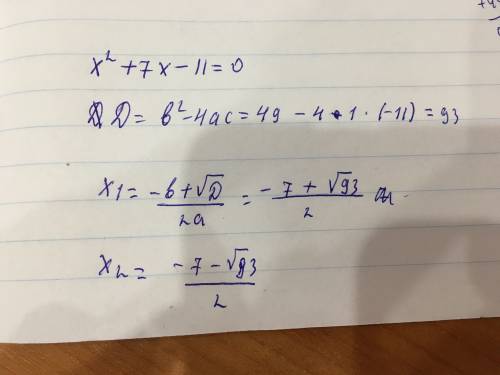 x² + 7x - 11 = 0
D = b² - 4ac = 49 - 4 · 1 · (-11) = 93
x1 = (-b + √D)/2a = (-7 + √93)/2
x2 = (-7 - √93)/2